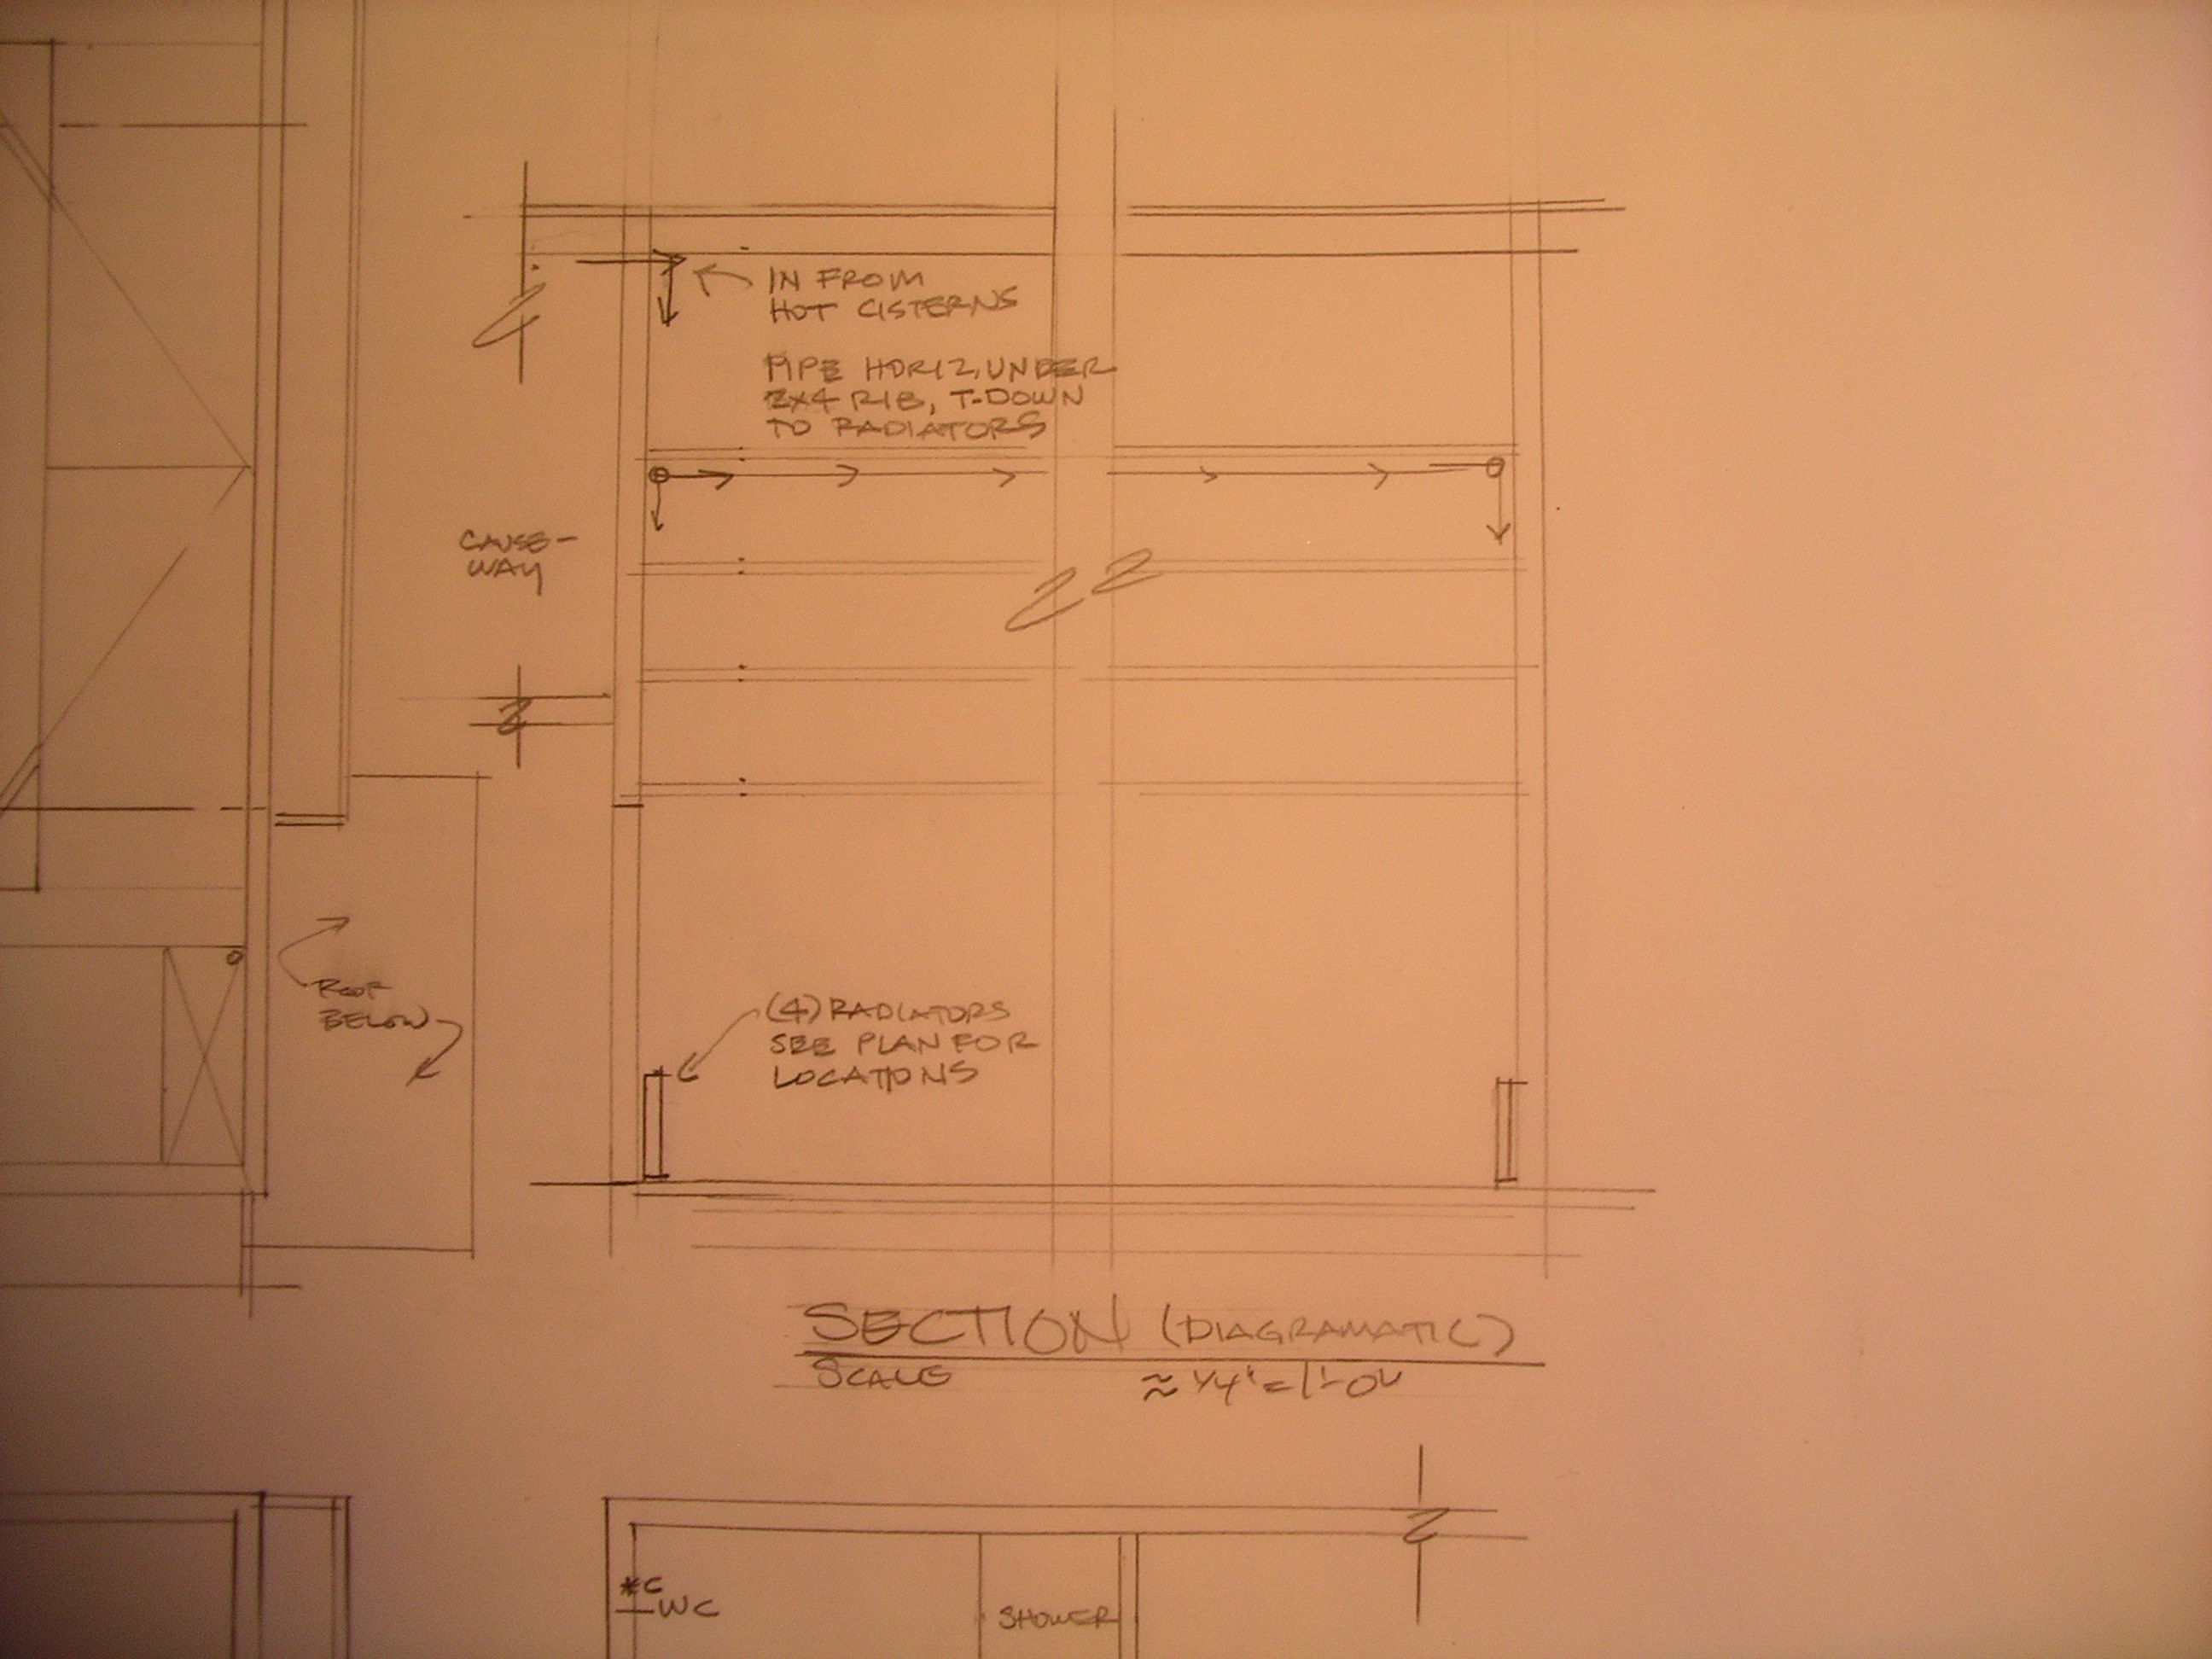 IN FROM
HOT CISTERNS
PIPE HORIZ, UNDER
2x4 RIB, T-DOWN
TO RADIATORS
CAUSE-
WAY
ROOF
BELOW
(4) RADIATORS
SEE PLAN FOR
LOCATIONS
SECTION (DIAGRAMATIC)
SCALE ≈ 1/4" = 1'-0"
*C
WC
SHOWER